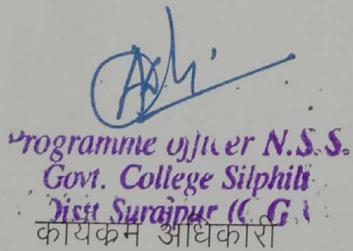 Programme officer N.S.S.
Govt. College Silphili
Distt Surajpur (C.G.)
कार्यक्रम अधिकारी